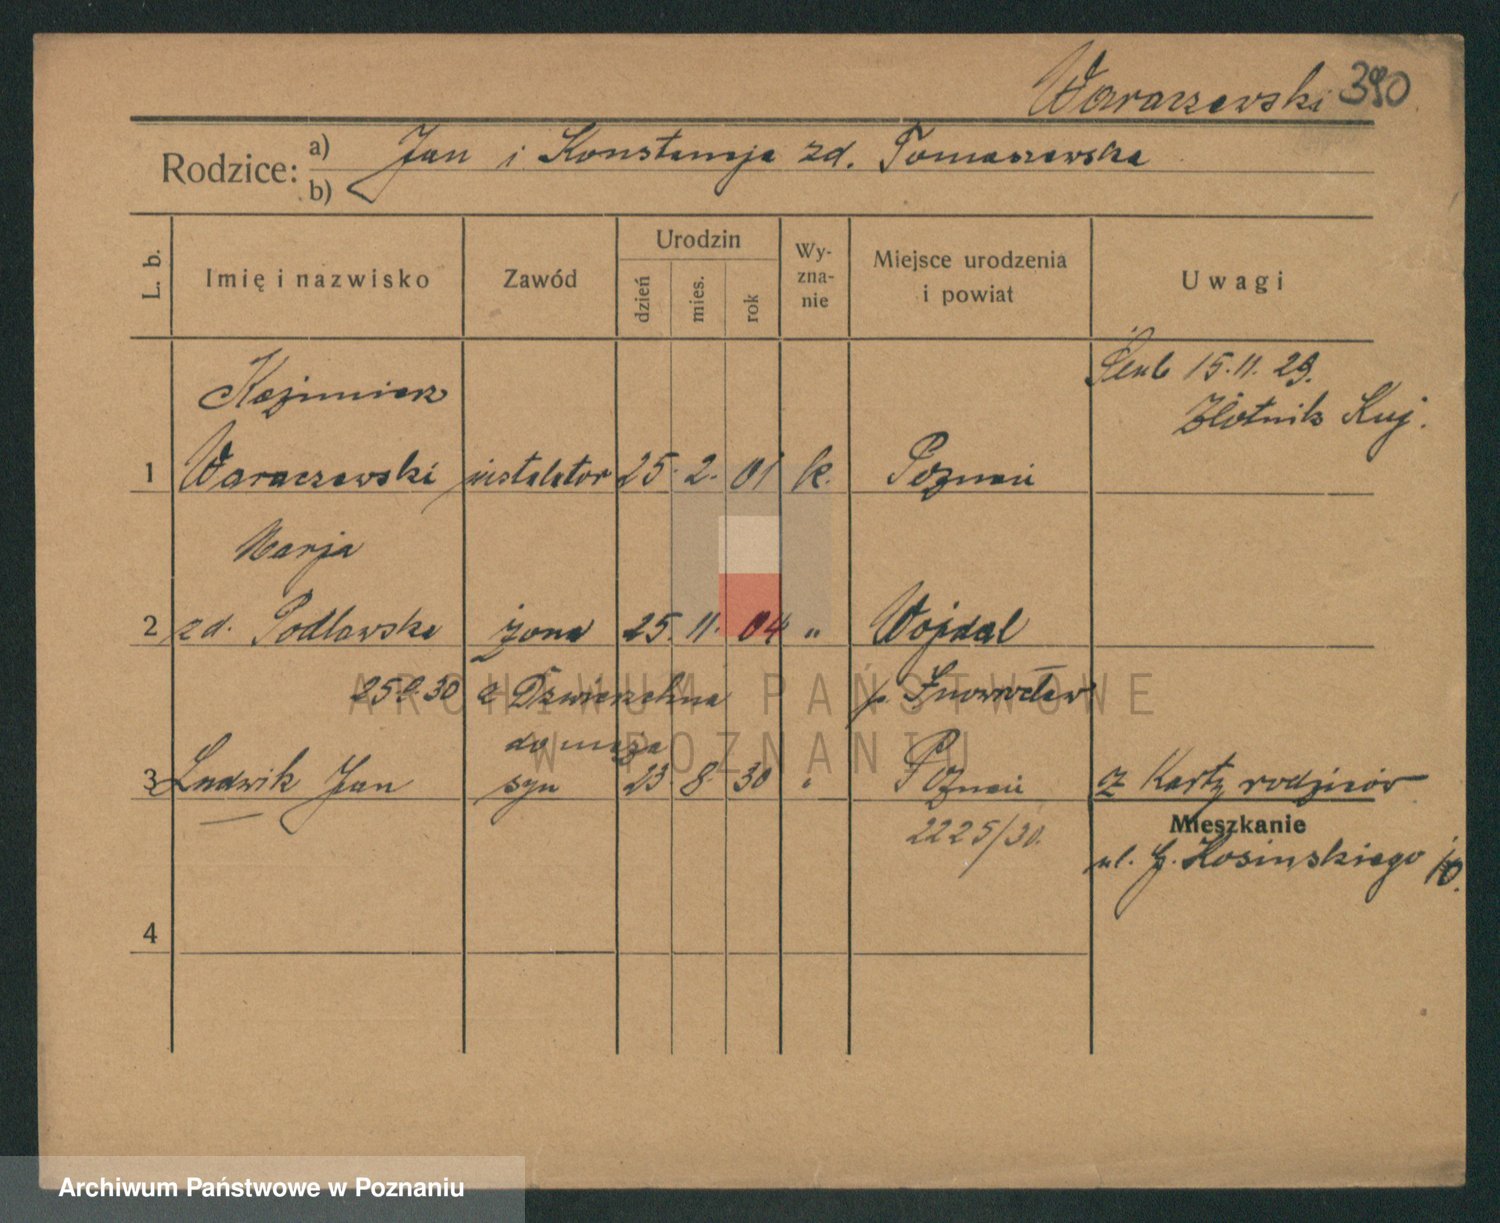 Waraczewski 390
Rodzice: a) Jan i Konstancja zd. Tomaszewska
b)
L. b.
Imię i nazwisko
Zawód
Urodzin
dzień
mies.
rok
Wy-
zna-
nie
Miejsce urodzenia
i powiat
Uwagi
Kazimierz
Ślub 15.11.29.
Złotnik Kuj.
1 Waraczewski instalator 25. 2. 01 k. Poznań
Marja
2 zd. Podlawska żona 25. 11. 04 " Wojdal
30 z Dźwierzchna p. Inowrocław
do męża
3 Ludwik Jan syn 23. 8. 30 " Poznań z Karty rodziców
2225/30.
Mieszkanie
ul. G. Kosinskiego 10.
4
ARCHIWUM PAŃSTWOWE
W POZNANIU
Archiwum Państwowe w Poznaniu